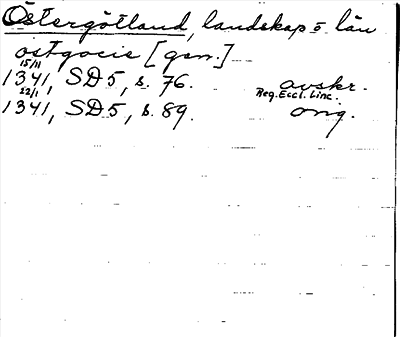 Östergötland, landskap o län
östgocie [gen.]
15/11
1341, SD5, s. 76. avskr.
Reg. Eccl. Linc.
22/1
1341, SD5, s. 89. orig.